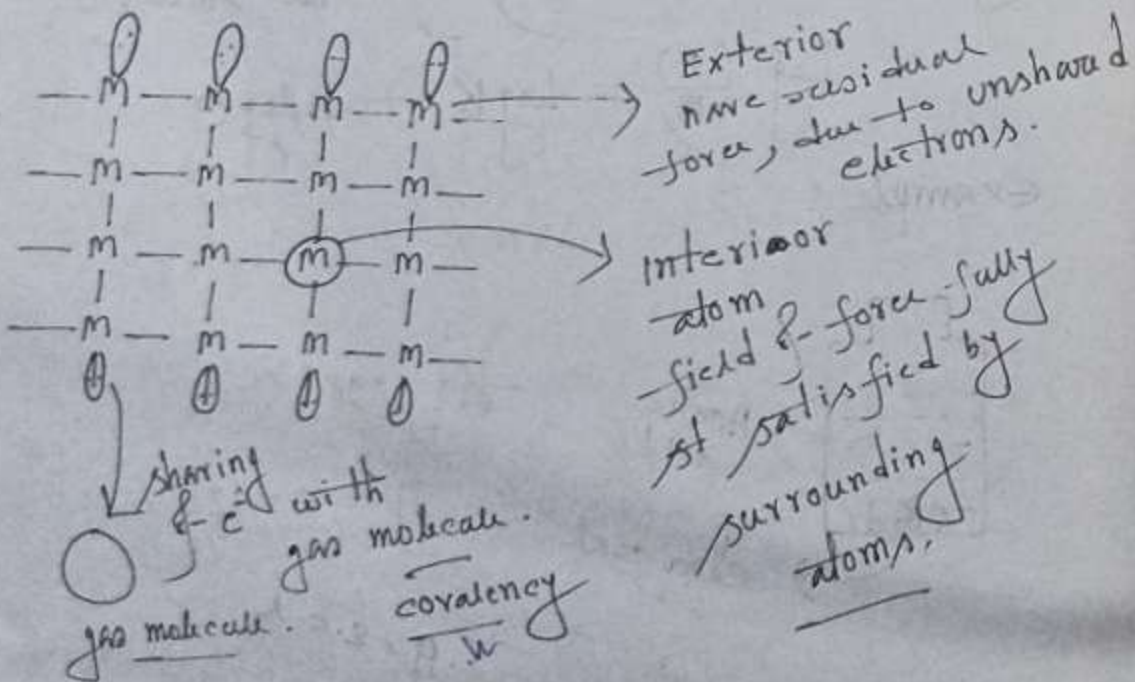 — m — m — m — m
Exterior
have residual
force, due to unshared
electrons.
— m — m — m — m —
— m — m — m — m —
interior
atom
field & force fully
satisfied by
surrounding
atoms.
— m — m — m — m —
sharing
of e⁻ with
gas molecule.
covalency
gas molecule.